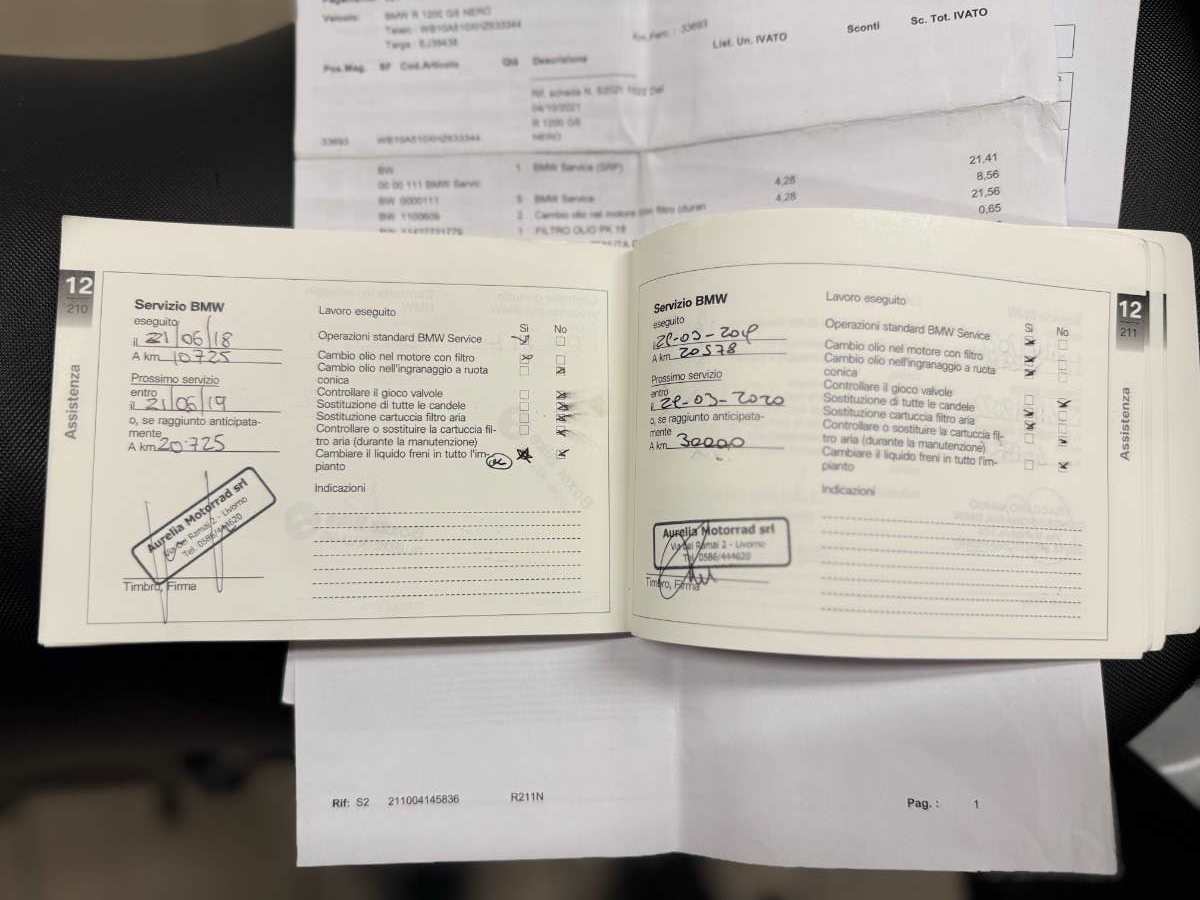 Veicolo: BMW R 1200 GS NERO
Targa :
List. Un. IVATO
Sconti
Sc. Tot. IVATO
Pos.Mag. SF Cod.Articolo Qtà Descrizione
R 1200 GS
NERO
33693
BW 1 BMW Service (SRP) 21,41
00 00 111 BMW Servic 4,28 8,56
BW 0000111 BMW Service 4,28 21,56
2 Cambio olio nel motore con filtro (duran 0,65
FILTRO OLIO PK 18
12
210
Assistenza
Servizio BMW
eseguito
il 21/06/18
A km 10725
Prossimo servizio
entro
il 21/06/19
o, se raggiunto anticipata-
mente
A km 20.725
Aurelia Motorrad srl
Via dei Ramai 2 - Livorno
Tel. 0586/444620
Timbro, Firma
Lavoro eseguito
Sì No
Operazioni standard BMW Service
Cambio olio nel motore con filtro
Cambio olio nell'ingranaggio a ruota
conica
Controllare il gioco valvole
Sostituzione di tutte le candele
Sostituzione cartuccia filtro aria
Controllare o sostituire la cartuccia fil-
tro aria (durante la manutenzione)
Cambiare il liquido freni in tutto l'im-
pianto
Indicazioni
12
211
Assistenza
Servizio BMW
eseguito
A km 20578
Prossimo servizio
entro
o, se raggiunto anticipata-
mente
A km 30000
Aurelia Motorrad srl
Via dei Ramai 2 - Livorno
Tel. 0586/444620
Timbro, Firma
Lavoro eseguito
Sì No
Operazioni standard BMW Service
Cambio olio nel motore con filtro
Cambio olio nell'ingranaggio a ruota
conica
Controllare il gioco valvole
Sostituzione di tutte le candele
Sostituzione cartuccia filtro aria
Controllare o sostituire la cartuccia fil-
tro aria (durante la manutenzione)
Cambiare il liquido freni in tutto l'im-
pianto
Indicazioni
Rif: S2 211004145836 R211N
Pag. : 1